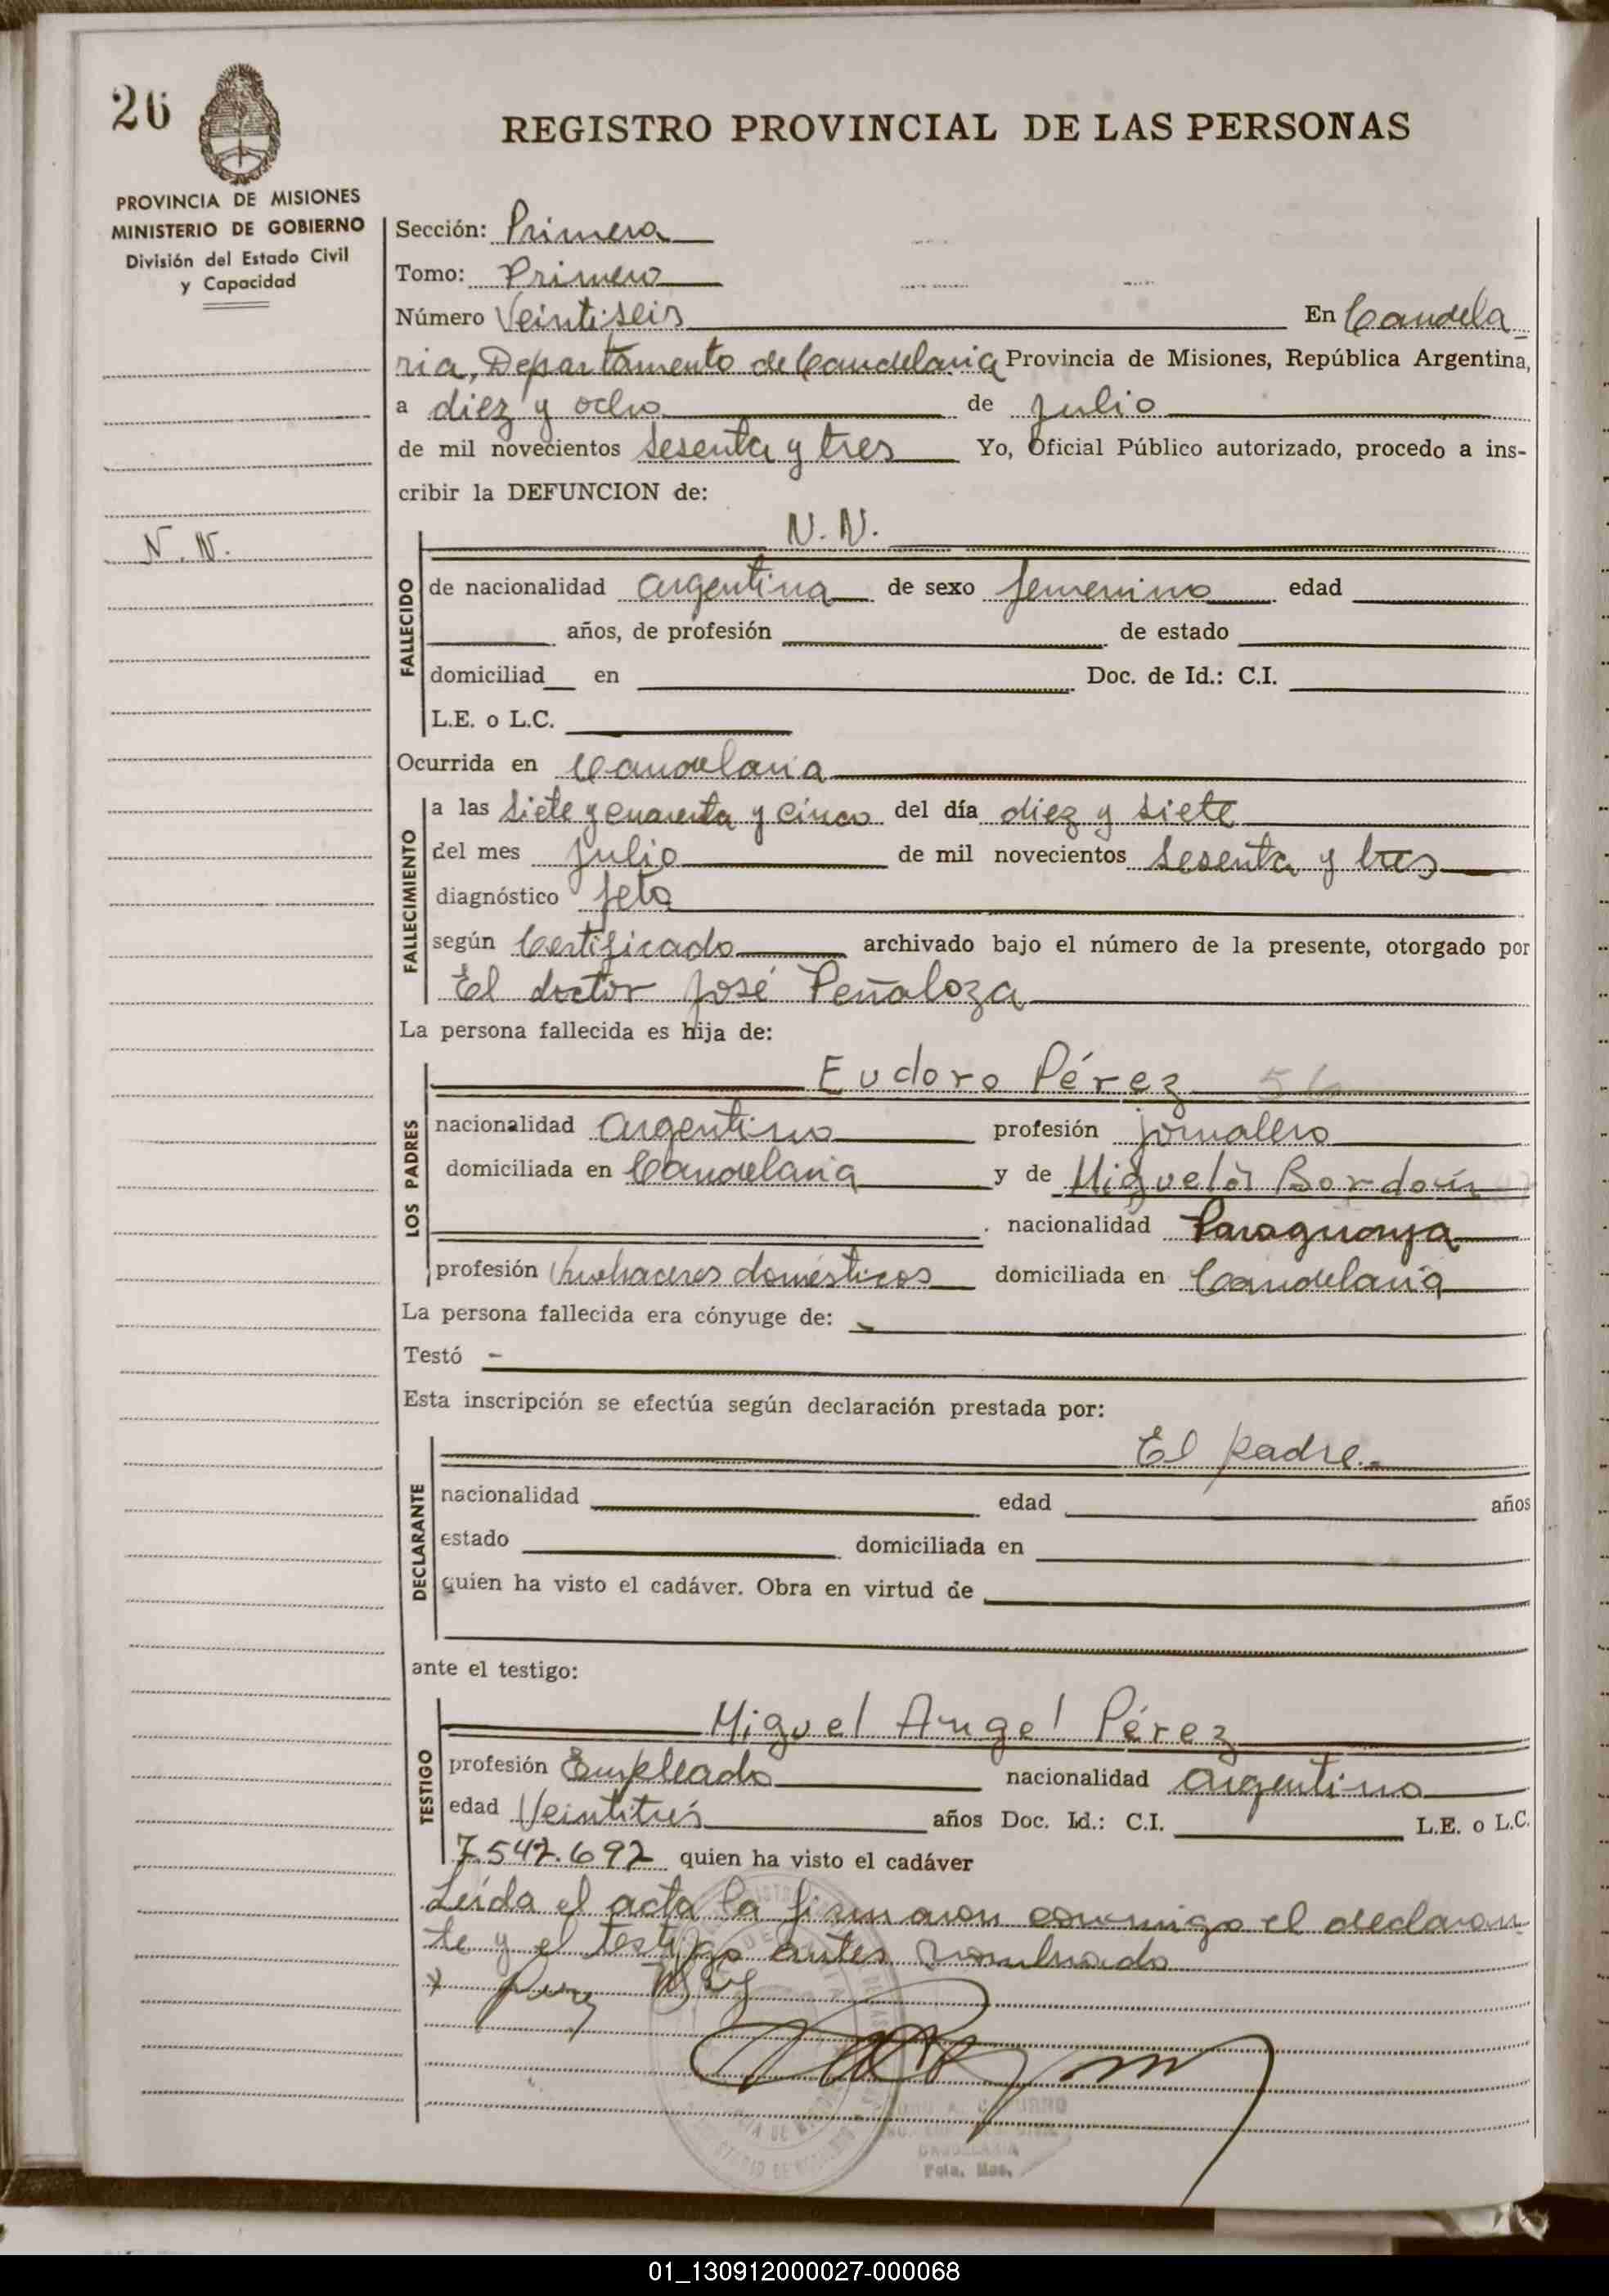 26
REGISTRO PROVINCIAL DE LAS PERSONAS
PROVINCIA DE MISIONES
MINISTERIO DE GOBIERNO
División del Estado Civil
y Capacidad
Sección: Primera
Tomo: Primero
Número Veintiseis En Candela
ria, Departamento de Candelaria Provincia de Misiones, República Argentina,
a diez y ocho de julio
de mil novecientos sesenta y tres Yo, Oficial Público autorizado, procedo a ins-
cribir la DEFUNCION de:
N. N.
N. N.
FALLECIDO
de nacionalidad argentina de sexo femenino edad
años, de profesión de estado
domiciliad en Doc. de Id.: C.I.
L.E. o L.C.
Ocurrida en Candelaria
FALLECIMIENTO
a las siete y cuarenta y cinco del día diez y siete
del mes julio de mil novecientos sesenta y tres
diagnóstico feto
según Certificado archivado bajo el número de la presente, otorgado por
El doctor José Peñaloza
La persona fallecida es hija de:
LOS PADRES
Eudoro Pérez 56
nacionalidad argentino profesión jornalero
domiciliada en Candelaria y de Miguela Bordoín
nacionalidad Paraguaya
profesión Quehaceres domésticos domiciliada en Candelaria
La persona fallecida era cónyuge de:
Testó -
Esta inscripción se efectúa según declaración prestada por:
DECLARANTE
El padre.-
nacionalidad edad años
estado domiciliada en
quien ha visto el cadáver. Obra en virtud de
ante el testigo:
TESTIGO
Miguel Angel Pérez
profesión Empleado nacionalidad argentino
edad Veintitrés años Doc. Id.: C.I. L.E. o L.C.
7.542.692 quien ha visto el cadáver
Leída el acta la firmaron conmigo el declaran
te y el testigo antes nombrado
CANDELARIA
Pcia. Mnes.
01_130912000027-000068